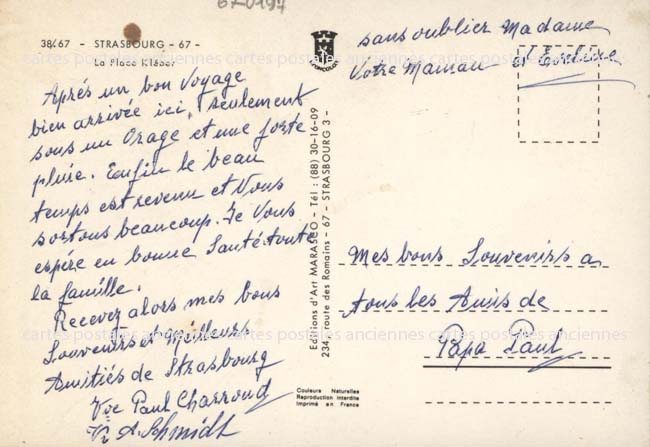 67-0194
38/67 - STRASBOURG - 67 -
La Place Kléber
Après un bon voyage
bien arrivée ici, seulement
sous un Orage et une forte
pluie. Enfin le beau
temps est revenu et Nous
sortons beaucoup. Je Vous
espère en bonne Santé toute
la famille.
Recevez alors mes bons
Souvenirs et Meilleurs
Amitiés de Strasbourg
Vve Paul Charroud
A. Schmidt
Editions d'Art MARASCO - Tél : (88) 30-16-09
234, route des Romains - 67 - STRASBOURG 3 -
sans oublier Madame
Votre Maman
Mes bons Souvenirs a
tous les Amis de
Papa Paul
Couleurs Naturelles
Reproduction Interdite
Imprimé en France
cartes postales anciennes cartes postales anciennes cartes postales anciennes